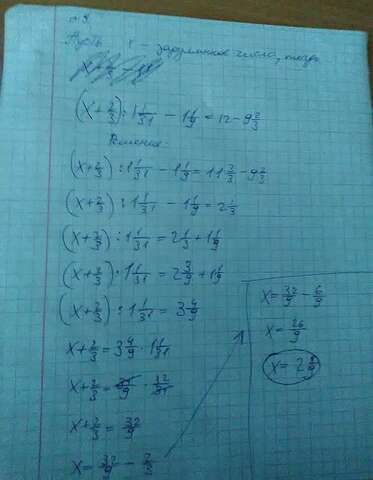 № 2
Пусть x – задуманное число, тогда
(x+2/3) : 1 1/31 - 1 1/9 = 12 - 9 2/3
Решение
(x+2/3) : 1 1/31 - 1 1/9 = 11 3/3 - 9 2/3
(x+2/3) : 1 1/31 - 1 1/9 = 2 1/3
(x+2/3) : 1 1/31 = 2 1/3 + 1 1/9
(x+2/3) : 1 1/31 = 2 3/9 + 1 1/9
(x+2/3) : 1 1/31 = 3 4/9
x+2/3 = 3 4/9 · 1 1/31
x+2/3 = 31/9 · 32/31
x+2/3 = 32/9
x = 32/9 - 2/3
x = 32/9 - 6/9
x = 26/9
x = 2 8/9